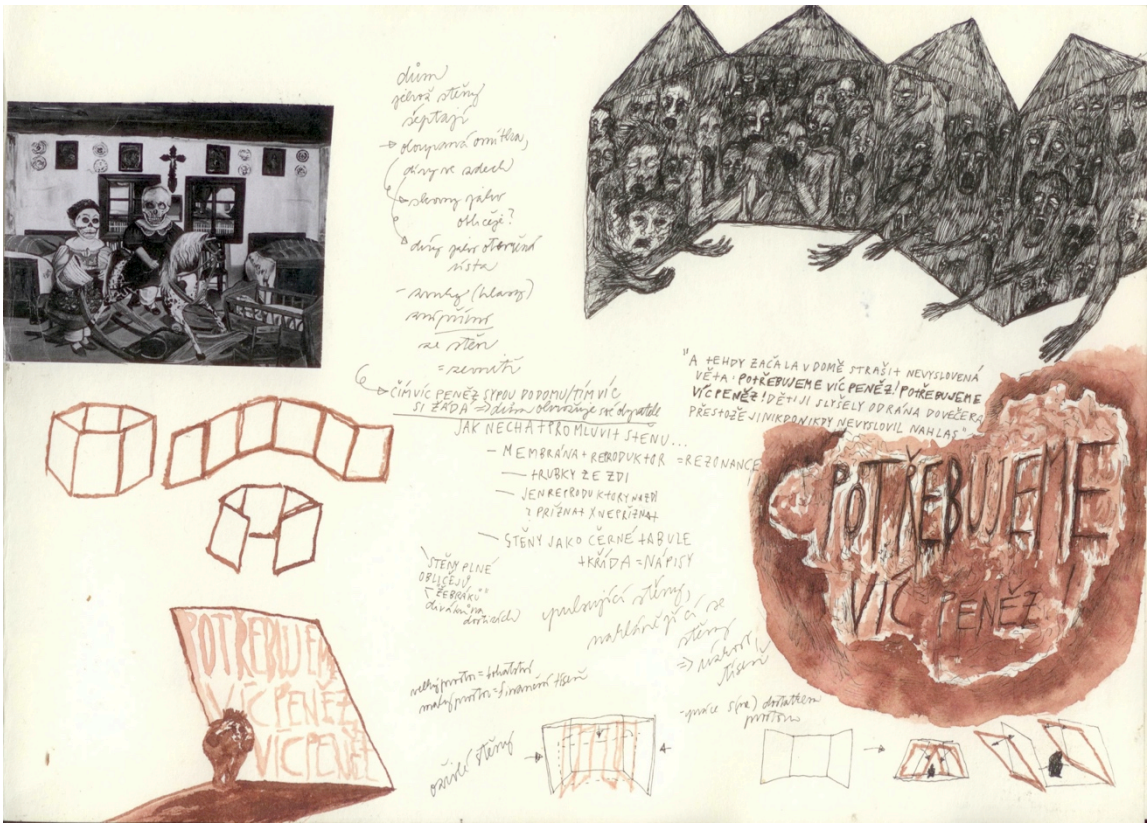 dům
jehož stěny
šeptají
→ oloupaná omítka,
díry ve zdech
→ skvrny jako
obličeje?
→ díry jako otevřená
ústa
- zvuky (hlasy)
zní přímo
ze stěn
= zevnitř
→ ČÍM VÍC PENĚZ SYPOU DO DOMU/TÍM VÍC
SI ŽÁDÁ => dům ohrožuje své obyvatele
JAK NECHAT PROMLUVIT STĚNU...
- MEMBRÁNA + REPRODUKTOR = REZONANCE
- TRUBKY ZE ZDI
- JEN REPRODUKTORY NA ZDI
? PŘIZNAT X NEPŘIZNAT
- STĚNY JAKO ČERNÉ TABULE
+ KŘÍDA = NÁPISY
STĚNY PLNÉ
OBLIČEJŮ
"ŽEBRÁKŮ"
diváků na
pulsující stěny,
naklánějící se
stěny
=> úzkost,
tíseň
velký prostor = bohatství
malý prostor = finanční tíseň
- práce s(ne) dostatkem
prostoru
stěny
"A TEHDY ZAČALA V DOMĚ STRAŠIT NEVYSLOVENÁ
VĚTA: POTŘEBUJEME VÍC PENĚZ! POTŘEBUJEME
VÍC PENĚZ! DĚTI JI SLYŠELY OD RÁNA DO VEČERA,
PŘESTOŽE JI NIKDO NIKDY NEVYSLOVIL NAHLAS"
POTŘEBUJEME
VÍC PENĚZ!
POTŘEBUJEME
VÍC PENĚZ,
VÍC PENĚZ